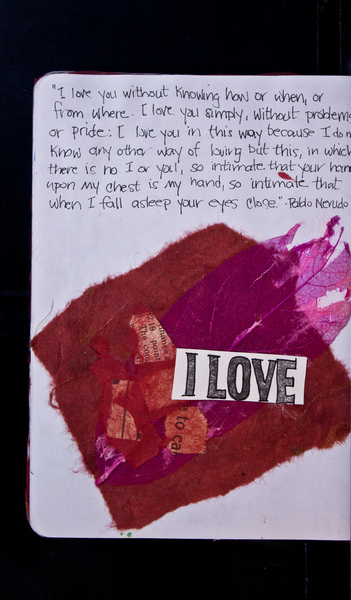 "I love you without knowing how or when, or
from where. I love you simply, without problems
or pride: I love you in this way because I do n
know any other way of loving but this, in which
there is no I or you, so intimate that your hand
upon my chest is my hand, so intimate that
when I fall asleep your eyes close." -Pablo Neruda
I LOVE
to ca